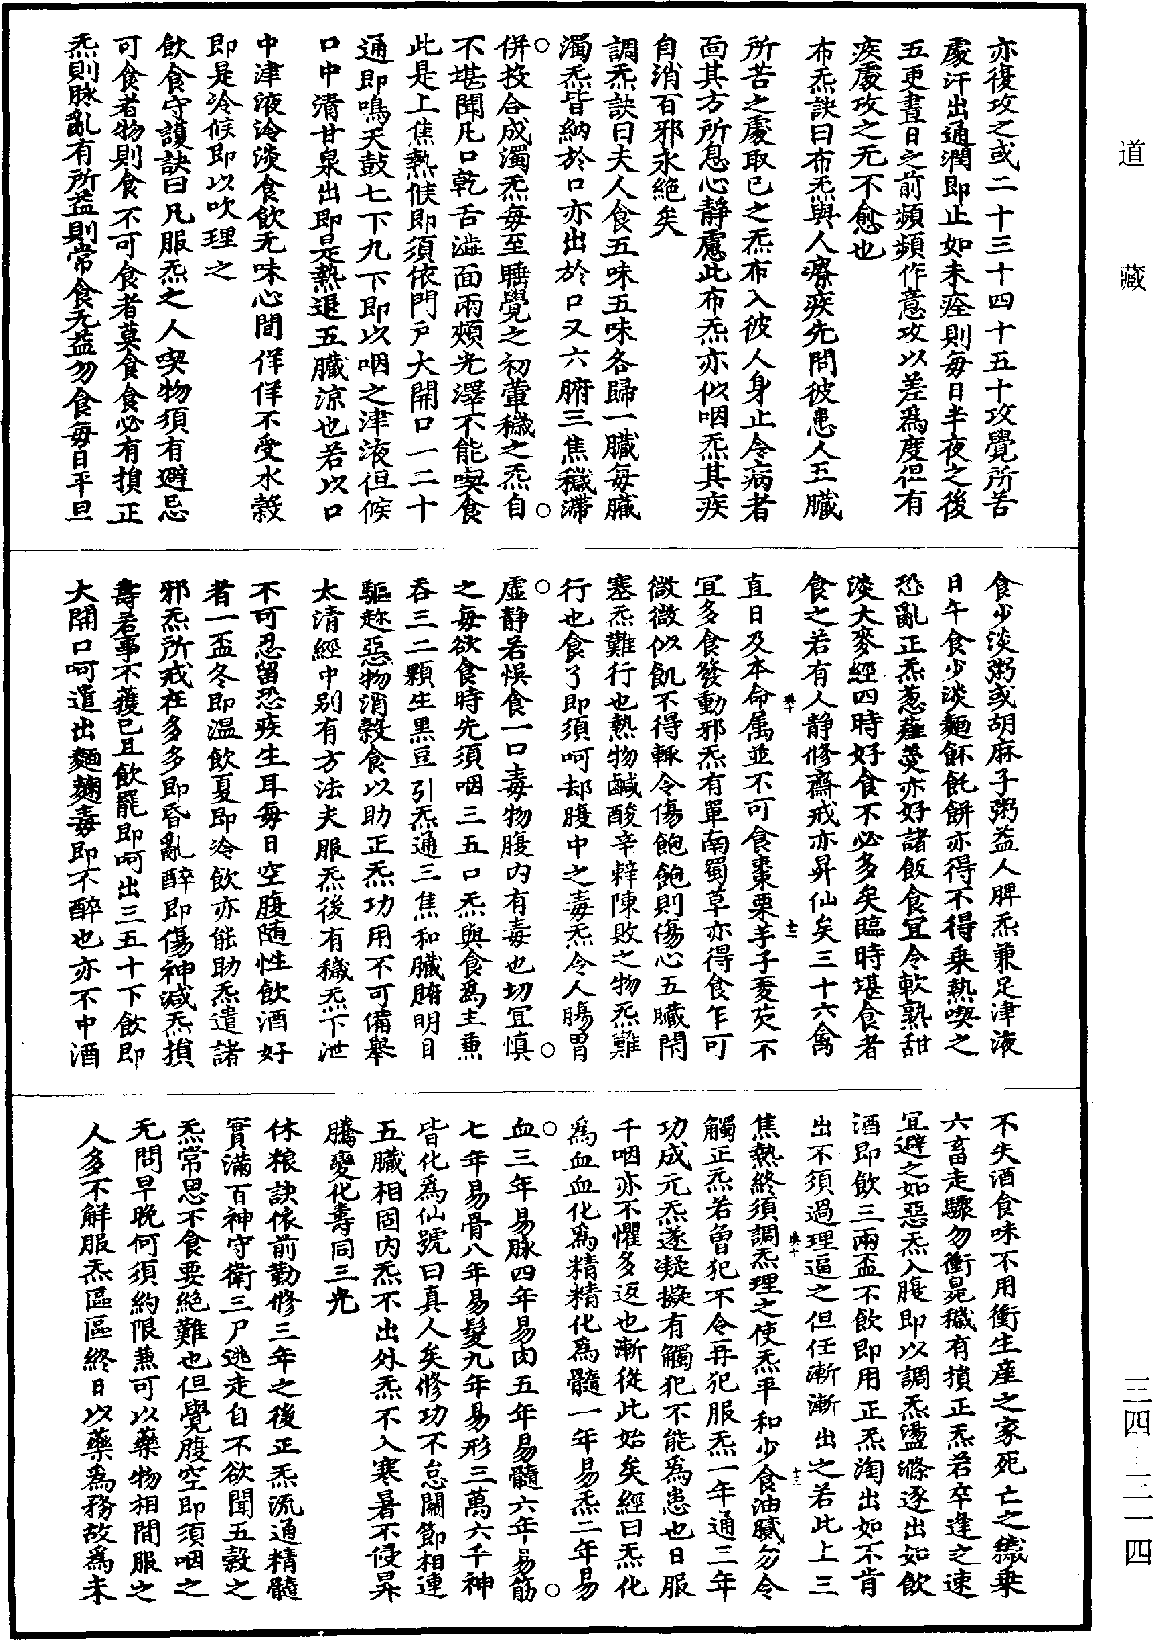 亦復攻之或二十三十四十五十攻覺所苦
處汗出通潤即止如未痊則每日半夜之後
五更晝日之前頻頻作意攻以差為度但有
疾處攻之无不愈也
布炁訣曰布炁與人療疾先問彼患人五臟
所苦之處取已之炁布入彼人身止令病者
面其方所息心靜慮此布炁亦似咽炁其疾
自消百邪永絕矣
調炁訣曰夫人食五味五味各歸一臟每臟
濁炁皆納於口亦出於口又六腑三焦穢滯
併投合成濁炁每至睡覺之初薰穢之炁自
不堪聞凡口乾舌澁面兩頰光澤不能喫食
此是上焦熱候即須依門戶大開口一二十
通即鳴天鼓七下九下即以咽之津液但候
口中清甘泉出即是熱退五臟涼也若以口
中津液冷淡食飲无味心間佯佯不受水穀
即是冷候即以吹理之
飲食守護訣曰凡服炁之人喫物須有避忌
可食者物則食不可食者莫食食必有損正
炁則脉亂有所益則常食无益勿食每日平旦
食少淡粥或胡麻子粥益人脾炁兼足津液
日午食少淡麵飥飥餅亦得不得乘熱喫之
恐亂正炁葱薤羹亦好諸飯食宜令軟熟甜
淡大麥經四時好食不必多矣臨時堪食者
食之若有人靜修齋戒亦昇仙矣三十六禽
直日及本命属並不可食棗栗芋子菱芡不
宜多食發動邪炁有單南蜀草亦得食乍可
微微似飢不得輙令傷飽飽則傷心五臟閉
塞炁難行也熱物鹹酸辛辢陳敗之物炁難
行也食了即須呵却腹中之毒炁令人腸胃
虛靜若悞食一口毒物腹内有毒也切宜慎
之每欲食時先須咽三五口炁與食為主兼
吞三二顆生黑豆引炁通三焦和臟腑明目
驅趂惡物消穀食以助正炁功用不可備舉
太清經中别有方法夫服炁後有穢炁下泄
不可忍留恐疾生耳每日空腹随性飲酒好
者一盃冬即温飲夏即冷飲亦能助炁遣諸
邪炁所戒在多多即昏亂醉即傷神減炁損
壽若事不獲已且飲罷即呵出三五十下飲即
大開口呵遣出麵麴毒即不醉也亦不中酒
不失酒食味不用衝生産之家死亡之穢乗
六畜走驟勿衝晃穢有損正炁若卒逢之速
宜避之如惡炁入腹即以調炁盪滌逐出如飲
酒即飲三兩盃不飲即用正炁淘出如不肯
出不須過理逼之但任漸漸出之若此上三
焦熱終須調炁理之使炁平和少食油膩勿令
觸正炁若曾犯不令再犯服炁一年通三年
功成元炁遂凝擬有觸犯不能為患也日服
千咽亦不懼多返也漸從此始矣經曰炁化
為血血化為精精化為髓一年易炁二年易
血三年易脉四年易肉五年易髓六年易筋
七年易骨八年易髮九年易形三萬六千神
皆化為仙號曰真人矣修功不怠關節相連
五臟相固内炁不出外炁不入寒暑不侵昇
騰變化壽同三光
休粮訣依前勤修三年之後正炁流通精髓
實滿百神守衛三尸逃走自不欲聞五穀之
炁常思不食要絕難也但覺腹空即須咽之
无問早晚何須約限兼可以藥物相間服之
人多不解服炁區區終日以藥為務故為未
道藏
三四-三一四